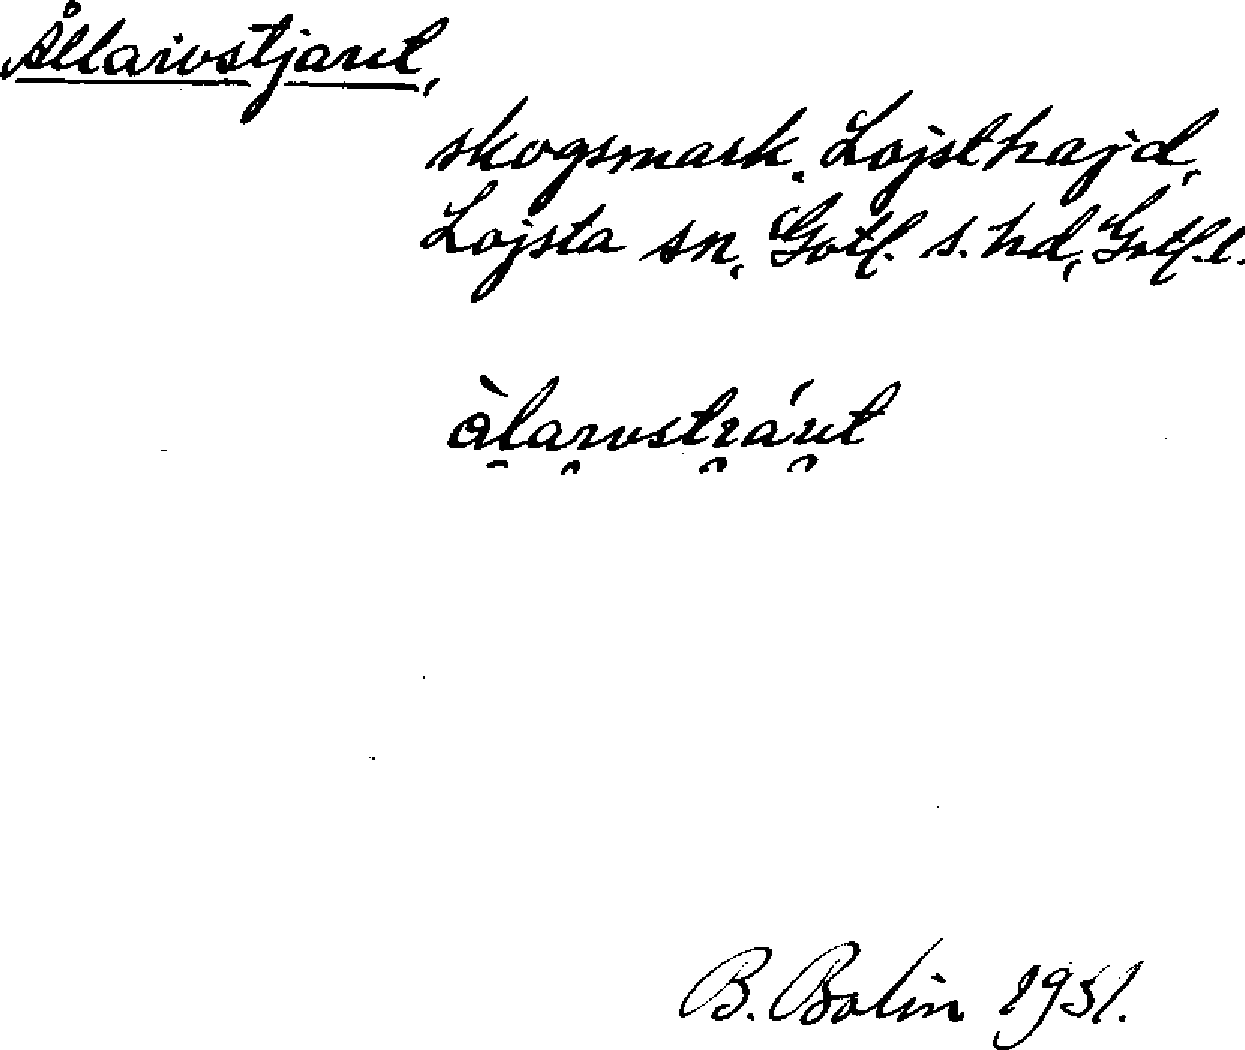 Ållarvstjaut,
skogsmark, Lojsthajd,
Lojsta sn, Gotl. s. hd, Gotl. l.
B. Bolin 1951.